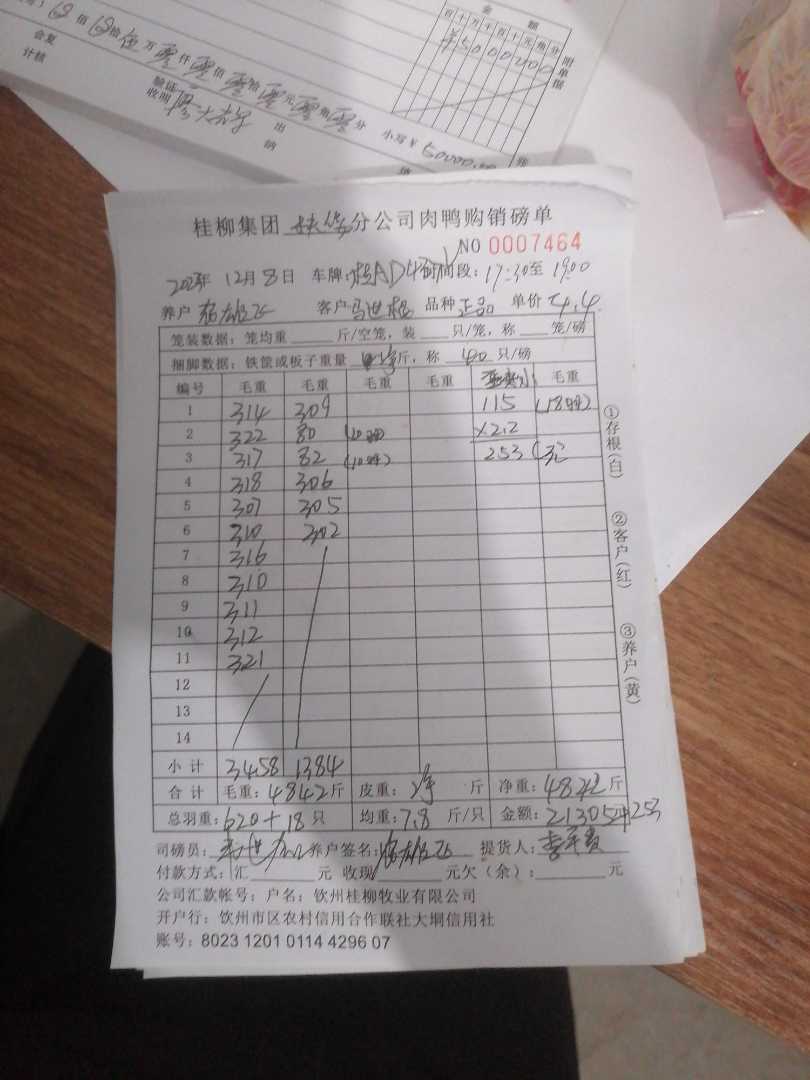 金额
百十万千百十元角分
附单据
¥5000000
佰 拾伍万零仟零佰零拾零元零角零分 小写¥50000.00
会计
复核
验证
收理
出纳
桂柳集团 扶绥 分公司肉鸭购销磅单
NO 0007464
2023年 12月8日 车牌: 时间段: 17:30至 19:00
养户 客户 马世 品种 正品 单价 4.4
笼装数据: 笼均重 斤/空笼, 装 只/笼, 称 笼/磅
捆脚数据: 铁筐或板子重量 净斤, 称 40 只/磅
编号 毛重 毛重 毛重 毛重 毛重
1 314 309 115 (18只)
2 322 80 (10只) ×2.2
3 317 82 (10只) 253
4 318 306
5 307 305
6 310 302
7 316
8 310
9 311
10 312
11 321
12
13
14
小计 3458 1384
合计 毛重: 4842斤 皮重: 净 斤 净重: 4842斤
总羽重: 620+18 只 均重: 7.8 斤/只 金额: 21305+253
司磅员: 养户签名: 提货人:
付款方式: 汇 元 收现 元欠(余): 元
公司汇款帐号: 户名: 钦州桂柳牧业有限公司
开户行: 钦州市区农村信用合作联社大垌信用社
账号: 8023 1201 0114 4296 07
①存根(白)
②客户(红)
③养户(黄)